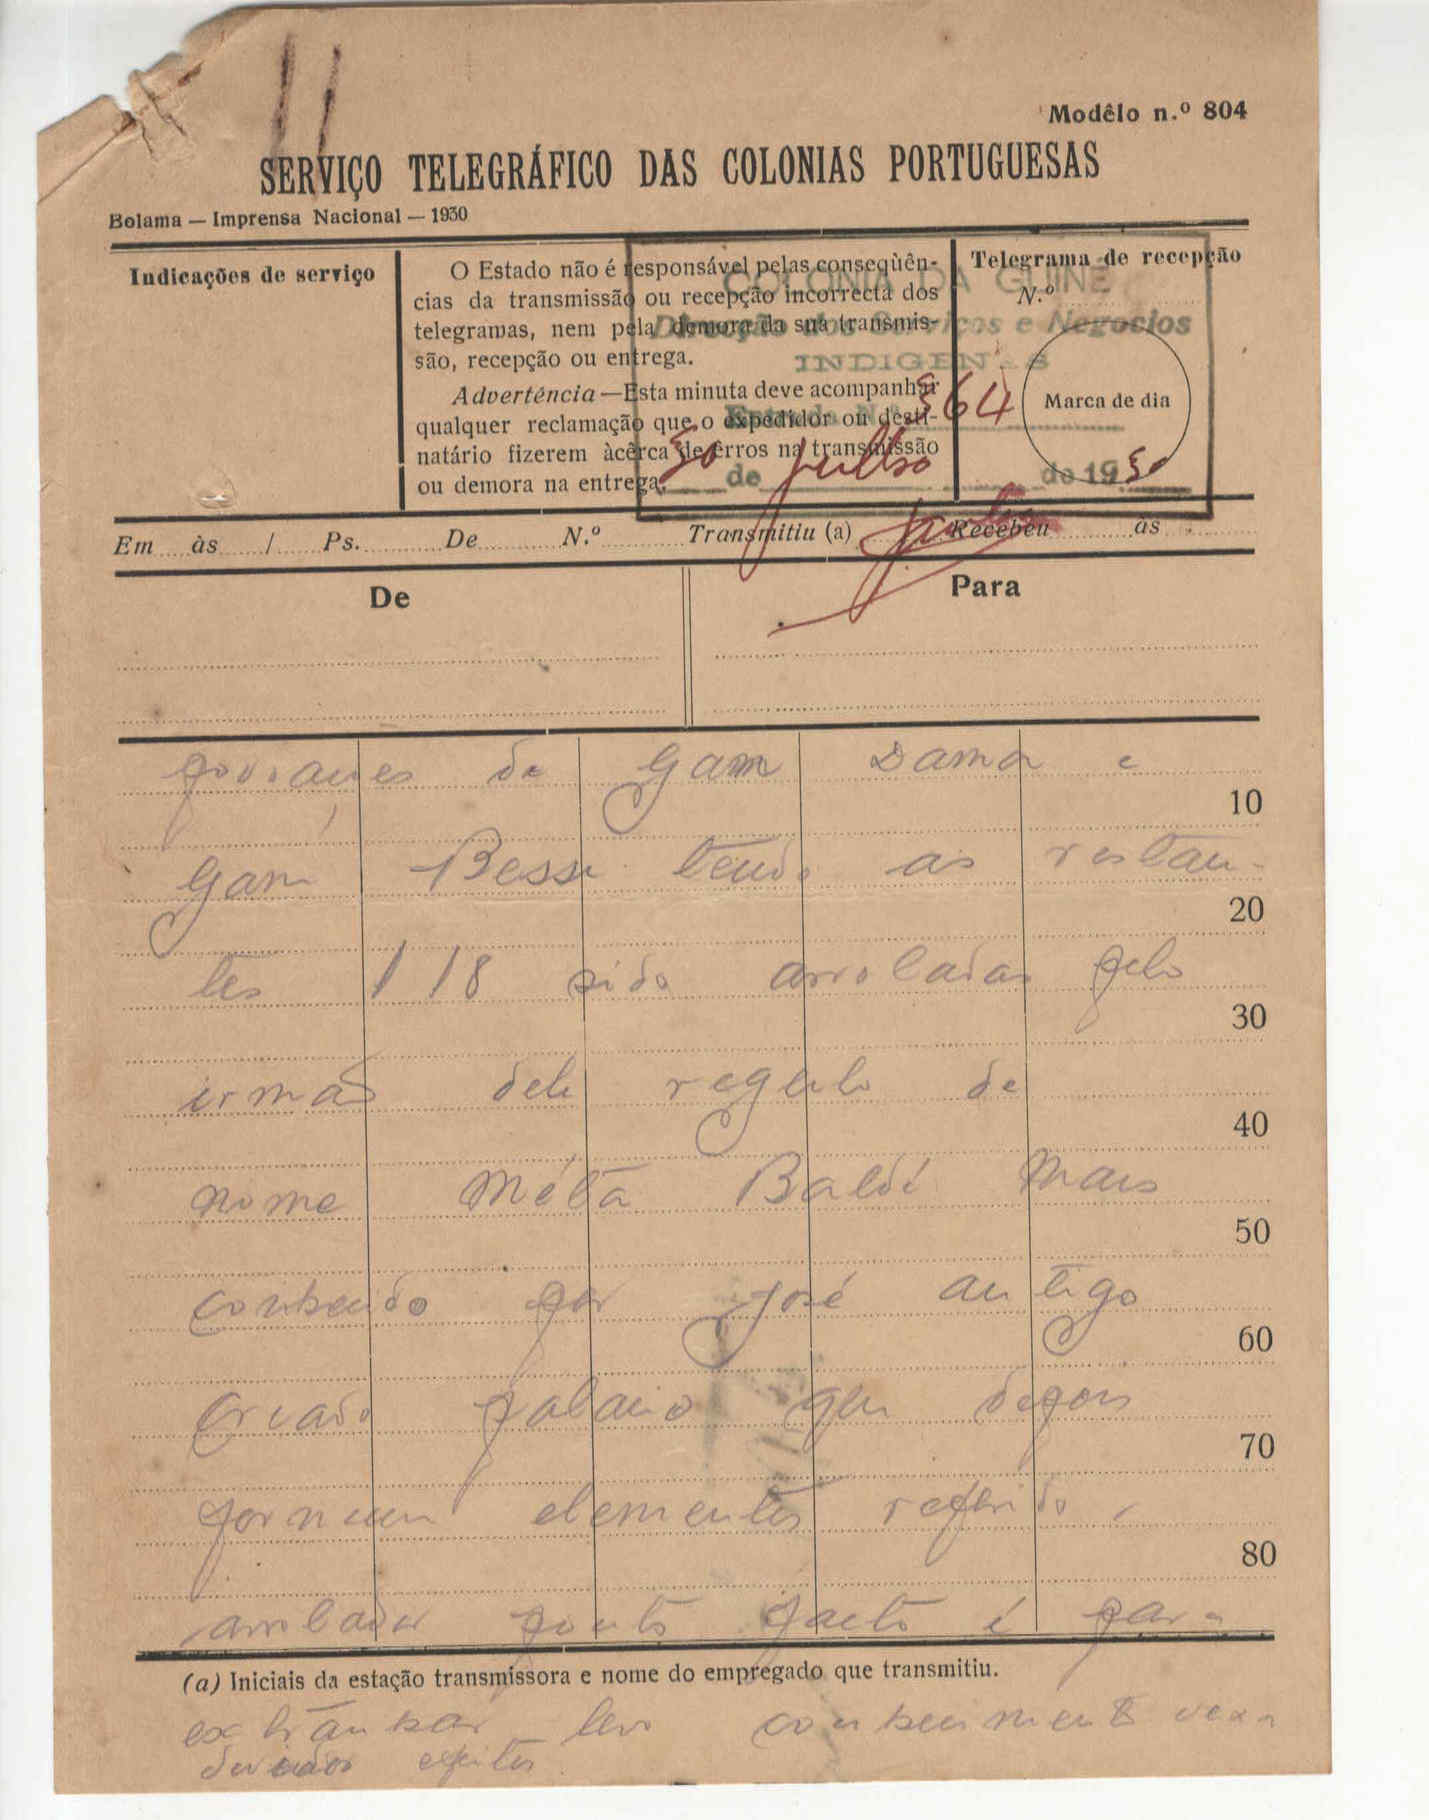 Modêlo n.º 804
SERVIÇO TELEGRÁFICO DAS COLONIAS PORTUGUESAS
Bolama — Imprensa Nacional — 1930
Indicações de serviço
O Estado não é responsável pelas conseqùên-
cias da transmissão ou recepção incorrecta dos
telegramas, nem pela demora da sua transmis-
são, recepção ou entrega.
Advertência — Esta minuta deve acompanhar
qualquer reclamação que o expedidor ou desti-
natário fizerem àcêrca de êrros na transmissão
ou demora na entrega.
Telegrama de recepção
N.º
Marca de dia
COLONIA DA GUINÉ
Direcção dos Serviços e Negocios
INDIGENAS
Entrada N.º 564
30 de julho de 1930
Em às / Ps. De N.º Transmitiu (a) Recebeu às
De
Para
povoações de Gam Dama e
10
Gam Bessi tendo as restan-
20
tes 118 sido arroladas pelo
30
irmão dele regulo de
40
nome Méta Baldé mais
50
conhecido por José antigo
60
criado palacio que depois
70
forneceu elementos referido
80
arrolador ponto facto é para
(a) Iniciais da estação transmissora e nome do empregado que transmitiu.
extranhar levo conhecimento vexa
devidos efeitos